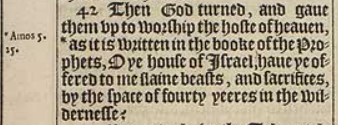 42 Then God turned, and gaue
them vp to worship the hoste of heauen,
*Amos 5.
25.
*as it is written in the booke of the Pro-
phets, O ye house of Israel, haue ye of-
fered to me slaine beasts, and sacrifices,
by the space of fourty yeeres in the wil-
dernesse?